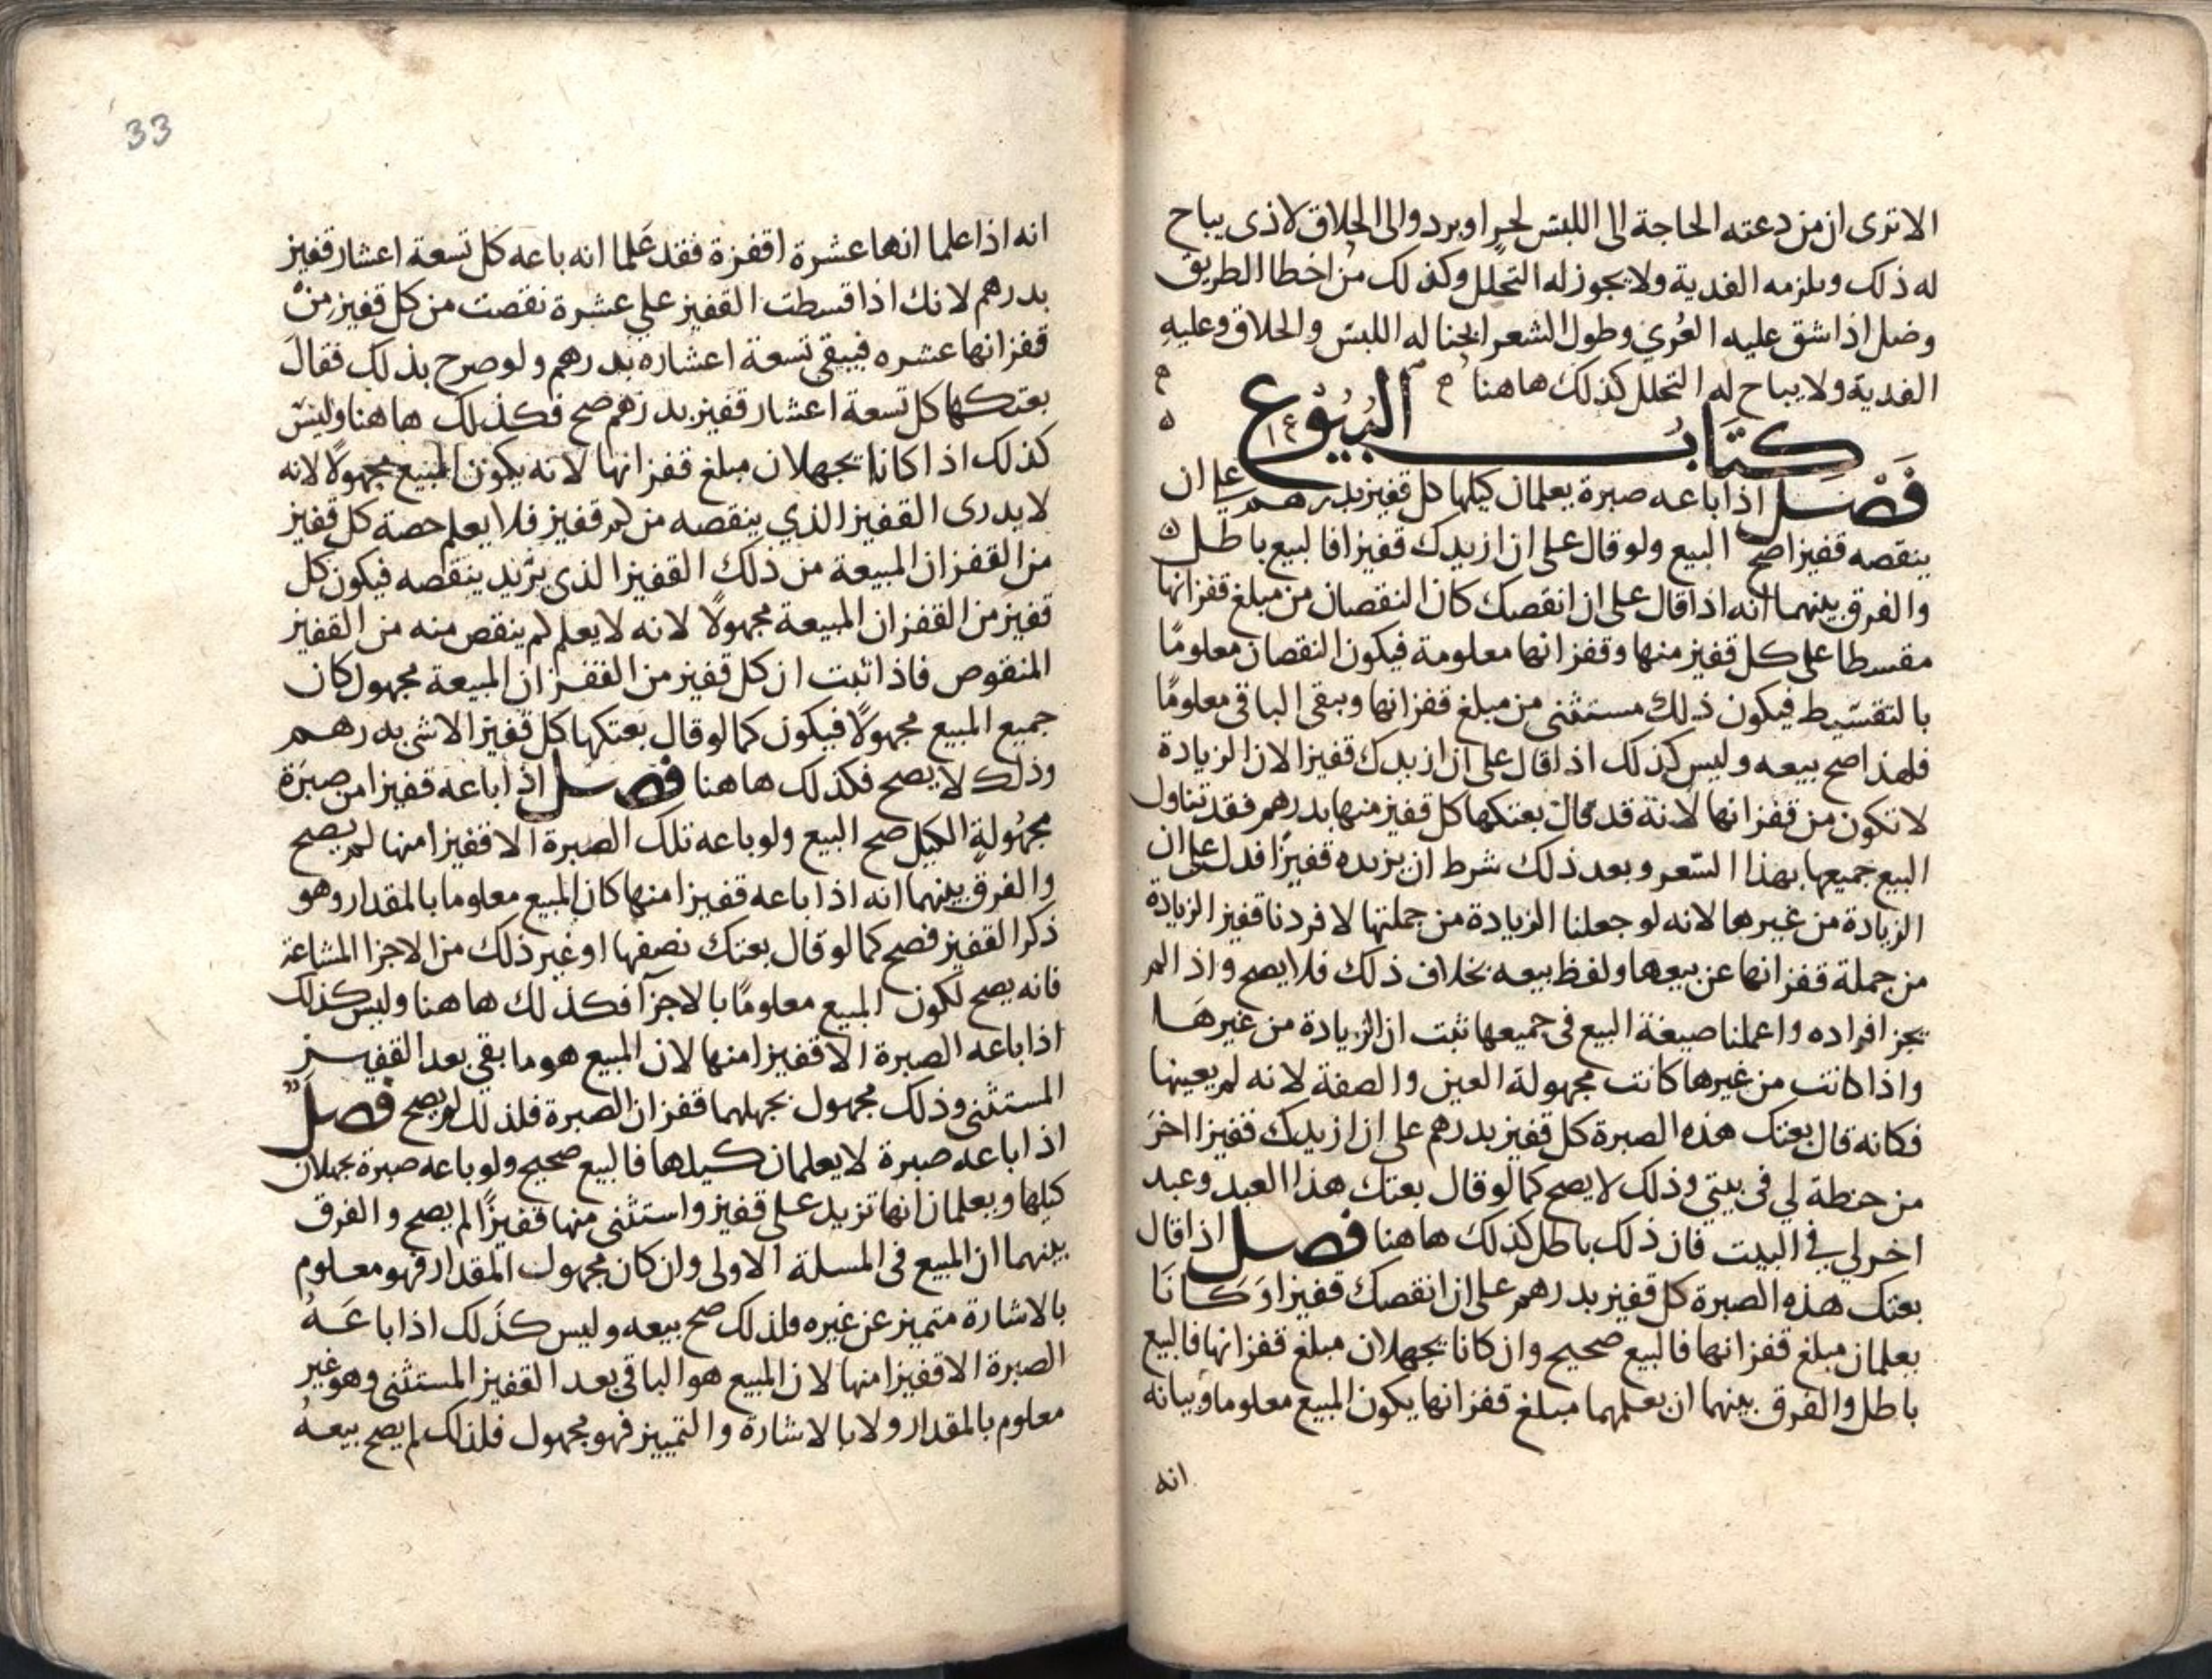 الاترى ان من دعته الحاجة الى اللبس لحر او برد والى الحلاق لاذى يباح
له ذلك ويلزمه الفدية ولا يجوز له التحلل وكذلك من اخطا الطريق
وضل اذا شق عليه العُري وطول الشعر ابحنا له اللبس والحلاق وعليه
الفدية ولا يباح له التحلل كذلك هاهنا
كتاب البيوع
فصل اذا باعه صبرة يعلمان كيلها كل قفيز بدرهم على ان
ينقصه قفيزا صح البيع ولو قال على ان ازيدك قفيزا فالبيع باطل
والفرق بينهما انه اذا قال على ان انقصك كان النقصان من مبلغ قفزانها
مقسطا على كل قفيز منها وقفزانها معلومة فيكون النقصان معلومًا
بالتقسيط فيكون ذلك مستثنى من مبلغ قفزانها ويبقى الباقي معلومًا
فلهذا صح بيعه وليس كذلك اذا قال على ان ازيدك قفيزا لان الزيادة
لا تكون من قفزانها لانه قد قال بعتكها كل قفيز منها بدرهم فقد تناول
البيع جميعها بهذا السعر وبعد ذلك شرط ان يزيده قفيزًا فدل على ان
الزيادة من غيرها لانه لو جعلنا الزيادة من جملتها لافردنا قفيز الزيادة
من جملة قفزانها عن بيعها ولفظ بيعه بخلاف ذلك فلا يصح واذا لم
يجز افراده واعملنا صيغة البيع في جميعها ثبت ان الزيادة من غيرها
واذا كانت من غيرها كانت مجهولة العين والصفة لانه لم يعينها
فكانه قال بعتك هذه الصبرة كل قفيز بدرهم على ان ازيدك قفيزا اخر
من حنطة لي في بيتي وذلك لا يصح كما لو قال بعتك هذا العبد وعبد
اخر لي في البيت فان ذلك باطل كذلك هاهنا فصل اذا قال
بعتك هذه الصبرة كل قفيز بدرهم على ان انقصك قفيزا وكانا
يعلمان مبلغ قفزانها فالبيع صحيح وان كانا يجهلان مبلغ قفزانها فالبيع
باطل والفرق بينهما ان بعلمهما مبلغ قفزانها يكون المبيع معلوما وبيانه
انه
33
انه اذا علما انها عشرة اقفزة فقد علما انه باعه كل تسعة اعشار قفيز
بدرهم لانك اذا قسطت القفيز على عشرة نقصت من كل قفيز من
قفزانها عشره فيبقى تسعة اعشاره بدرهم ولو صرح بذلك فقال
بعتكها كل تسعة اعشار قفيز بدرهم صح فكذلك هاهنا وليس
كذلك اذا كانا يجهلان مبلغ قفزانها لانه يكون المبيع مجهولًا لانه
لا يدرى القفيز الذي ينقصه من كم قفيز فلا يعلم حصة كل قفيز
من القفزان المبيعة من ذلك القفيز الذى يريد ينقصه فيكون كل
قفيز من القفزان المبيعة مجهولًا لانه لا يعلم كم ينقص منه من القفيز
المنقوص فاذا ثبت ان كل قفيز من القفزان المبيعة مجهول كان
جميع المبيع مجهولًا فيكون كما لو قال بعتكها كل قفيز الا شي بدرهم
وذلك لا يصح فكذلك هاهنا فصل اذا باعه قفيزا من صبرة
مجهولة الكيل صح البيع ولو باعه تلك الصبرة الا قفيزا منها لم يصح
والفرق بينهما انه اذا باعه قفيزا منها كان المبيع معلوما بالمقدار وهو
ذكر القفيز فصح كما لو قال بعتك نصفها او غير ذلك من الاجزا المشاعة
فانه يصح لكون المبيع معلومًا بالاجزآ فكذلك هاهنا وليس كذلك
اذا باعه الصبرة الا قفيزا منها لان المبيع هو ما بقي بعد القفيز
المستثنى وذلك مجهول بجهلهما قفزان الصبرة فلذلك لم يصح فصل
اذا باعه صبرة لا يعلمان كيلها فالبيع صحيح ولو باعه صبرة يجهلان
كيلها ويعلمان انها تزيد على قفيز واستثنى منها قفيزًا لم يصح والفرق
بينهما ان المبيع في المسلة الاولى وان كان مجهول المقدار فهو معلوم
بالاشارة متميز عن غيره فلذلك صح بيعه وليس كذلك اذا باعه
الصبرة الا قفيزا منها لان المبيع هو الباقي بعد القفيز المستثنى وهو غير
معلوم بالمقدار ولا بالاشارة والتمييز فهو مجهول فلذلك لم يصح بيعه